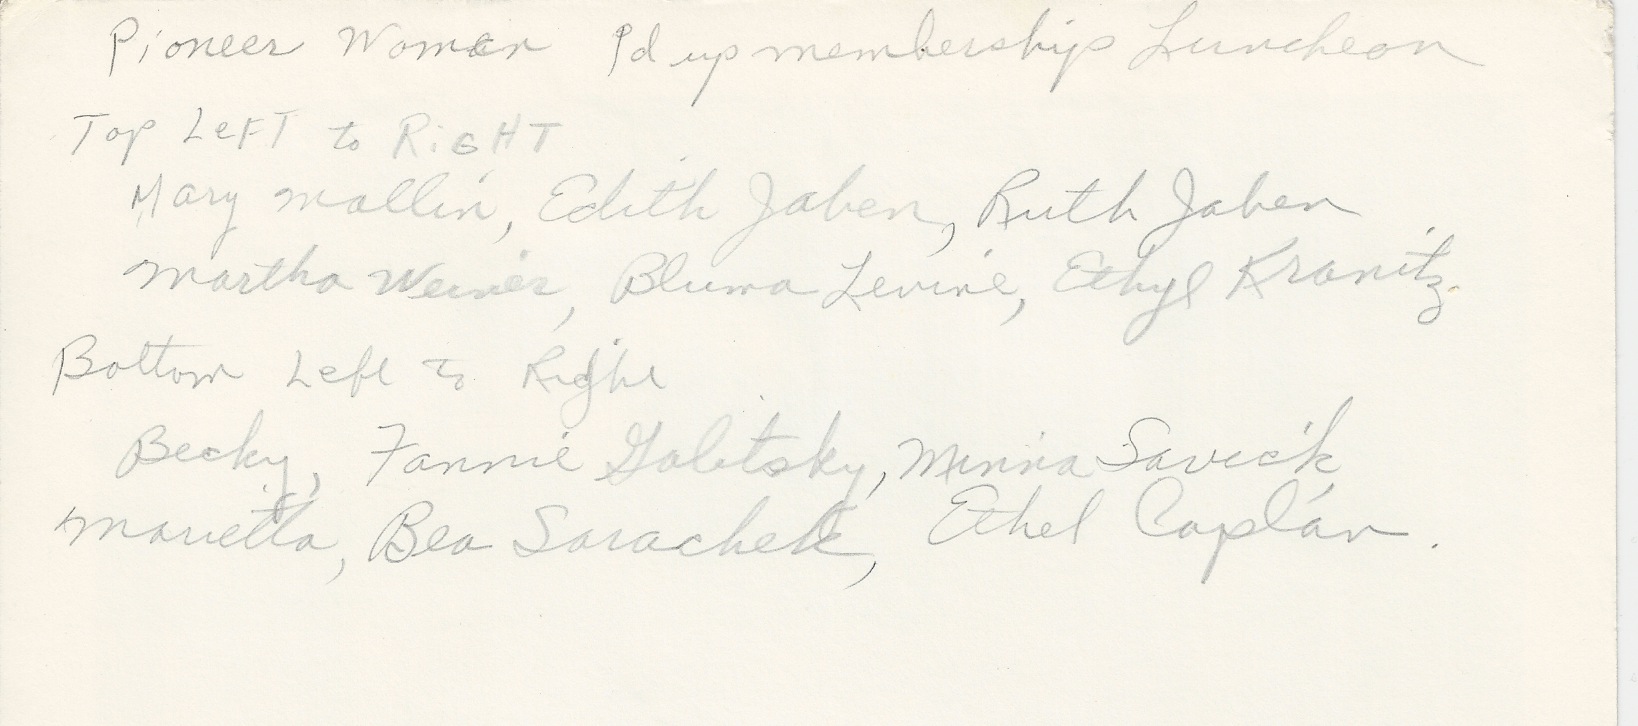 Pioneer Women Pd up membership Luncheon
Top Left to RiGHT
Mary Mallin, Edith Jaben, Ruth Jaben
Martha Weiner, Bluma Levine, Ethyl Kranitz.
Bottom Left to Right
Becky, Fannie Galitsky, Minna Savick
Marietta, Bea Sarachek, Ethel Caplan.